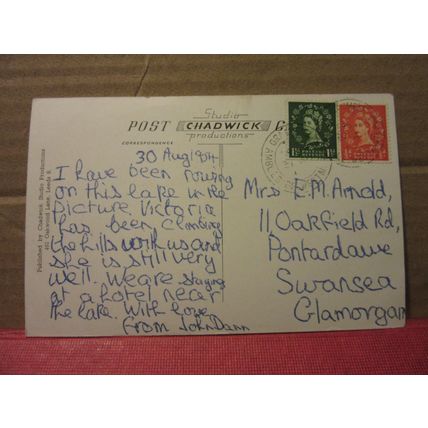 Studio
POST CHADWICK
productions
CORRESPONDENCE
30 Aug
I have been rowing
on this lake in the
picture. Victoria
has been climbing
the hills with us and
she is still very
well. We are staying
at a hotel near
the lake. With love
From John Dann
Mrs E.M. Arnold,
11, Oakfield Rd,
Pontardawe
Swansea
Glamorgan
Published by Chadwick Studio Productions
Oakwood Lane, Leeds 8.
POSTAGE
REVENUE